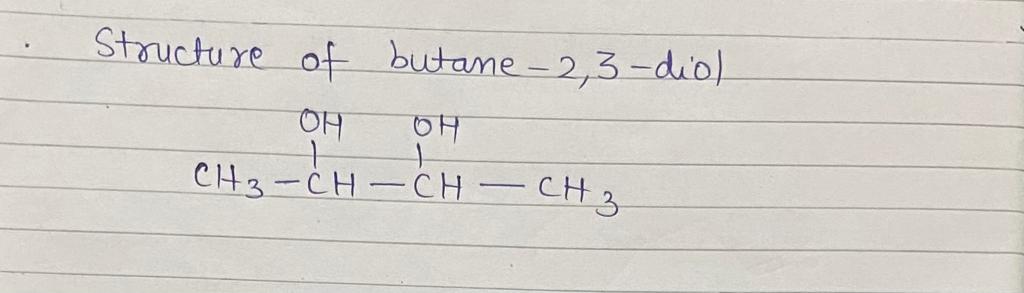 . Structure of butane-2,3-diol
OH OH
CH3-CH-CH-CH3